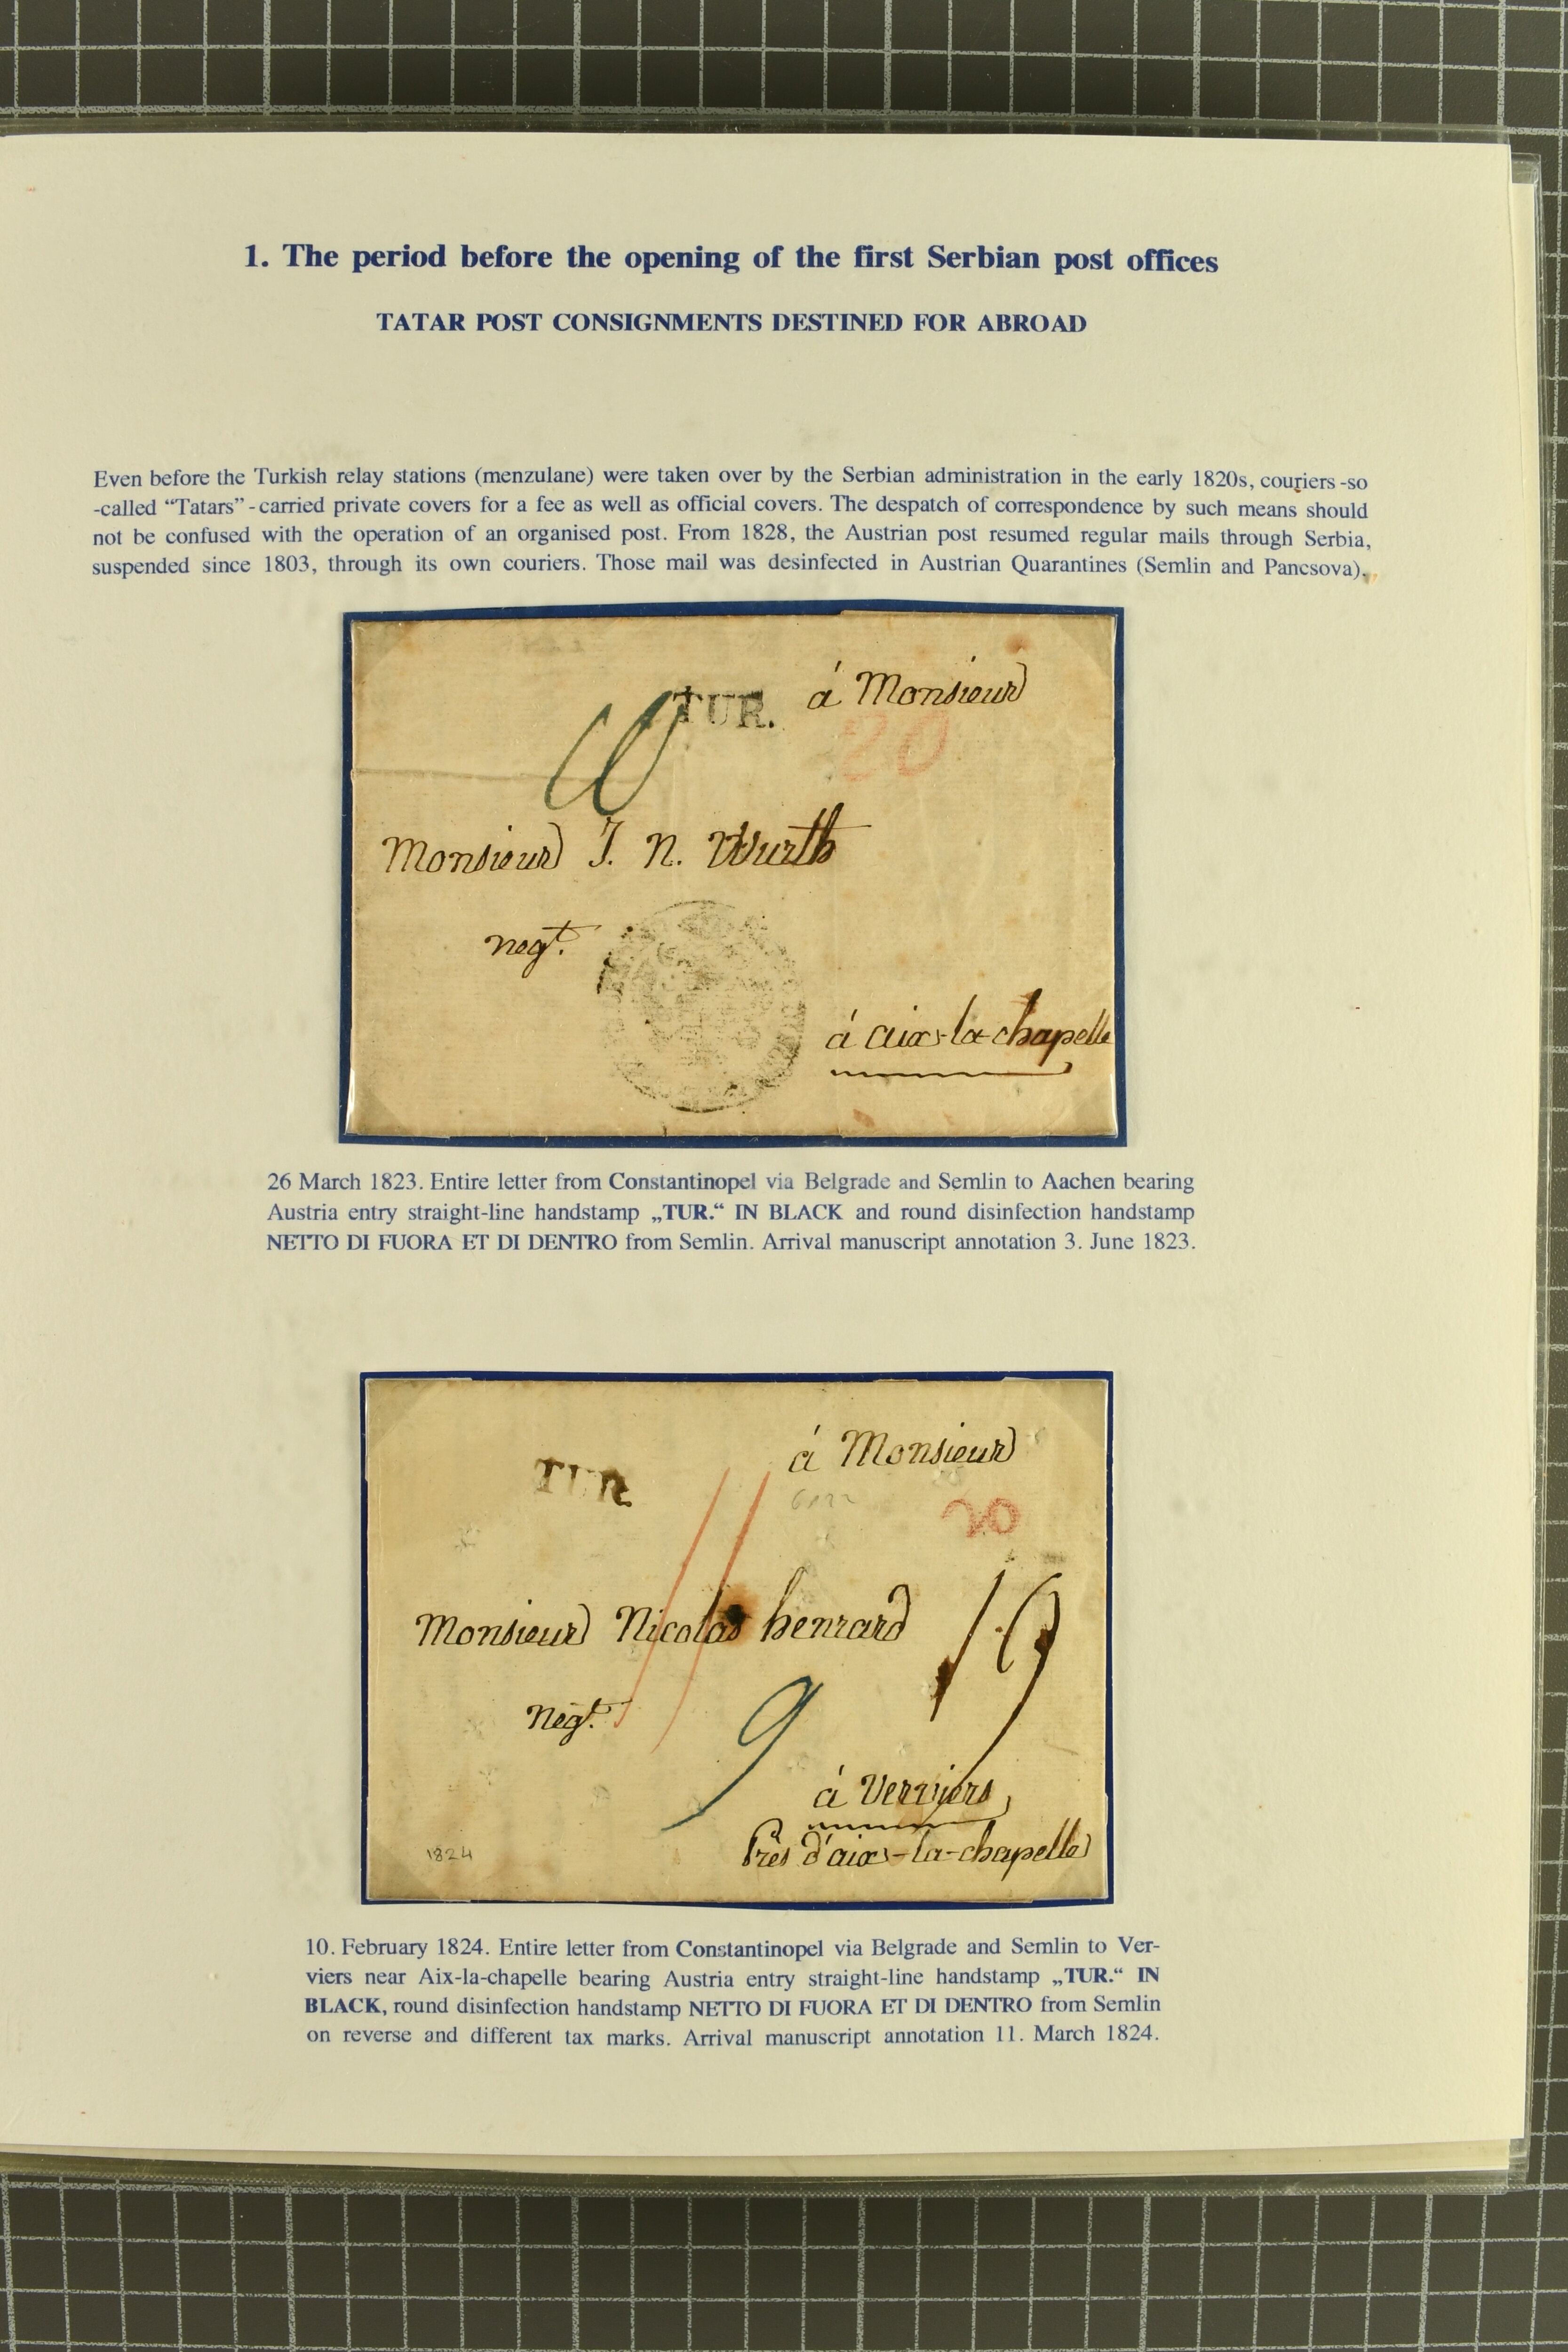 1. The period before the opening of the first Serbian post offices
TATAR POST CONSIGNMENTS DESTINED FOR ABROAD
Even before the Turkish relay stations (menzulane) were taken over by the Serbian administration in the early 1820s, couriers -so
-called “Tatars” - carried private covers for a fee as well as official covers. The despatch of correspondence by such means should
not be confused with the operation of an organised post. From 1828, the Austrian post resumed regular mails through Serbia,
suspended since 1803, through its own couriers. Those mail was desinfected in Austrian Quarantines (Semlin and Pancsova).
TUR.
á Monsieur
20
Monsieur J. N. Wurth
negt.
á aix-la-chapelle
26 March 1823. Entire letter from Constantinopel via Belgrade and Semlin to Aachen bearing
Austria entry straight-line handstamp „TUR.“ IN BLACK and round disinfection handstamp
NETTO DI FUORA ET DI DENTRO from Semlin. Arrival manuscript annotation 3. June 1823.
á Monsieur
TUR.
20
Monsieur Nicolas henrard
negt.
9
á Verviers
Près d'aix-la-chapelle
1824
10. February 1824. Entire letter from Constantinopel via Belgrade and Semlin to Ver-
viers near Aix-la-chapelle bearing Austria entry straight-line handstamp „TUR.“ IN
BLACK, round disinfection handstamp NETTO DI FUORA ET DI DENTRO from Semlin
on reverse and different tax marks. Arrival manuscript annotation 11. March 1824.